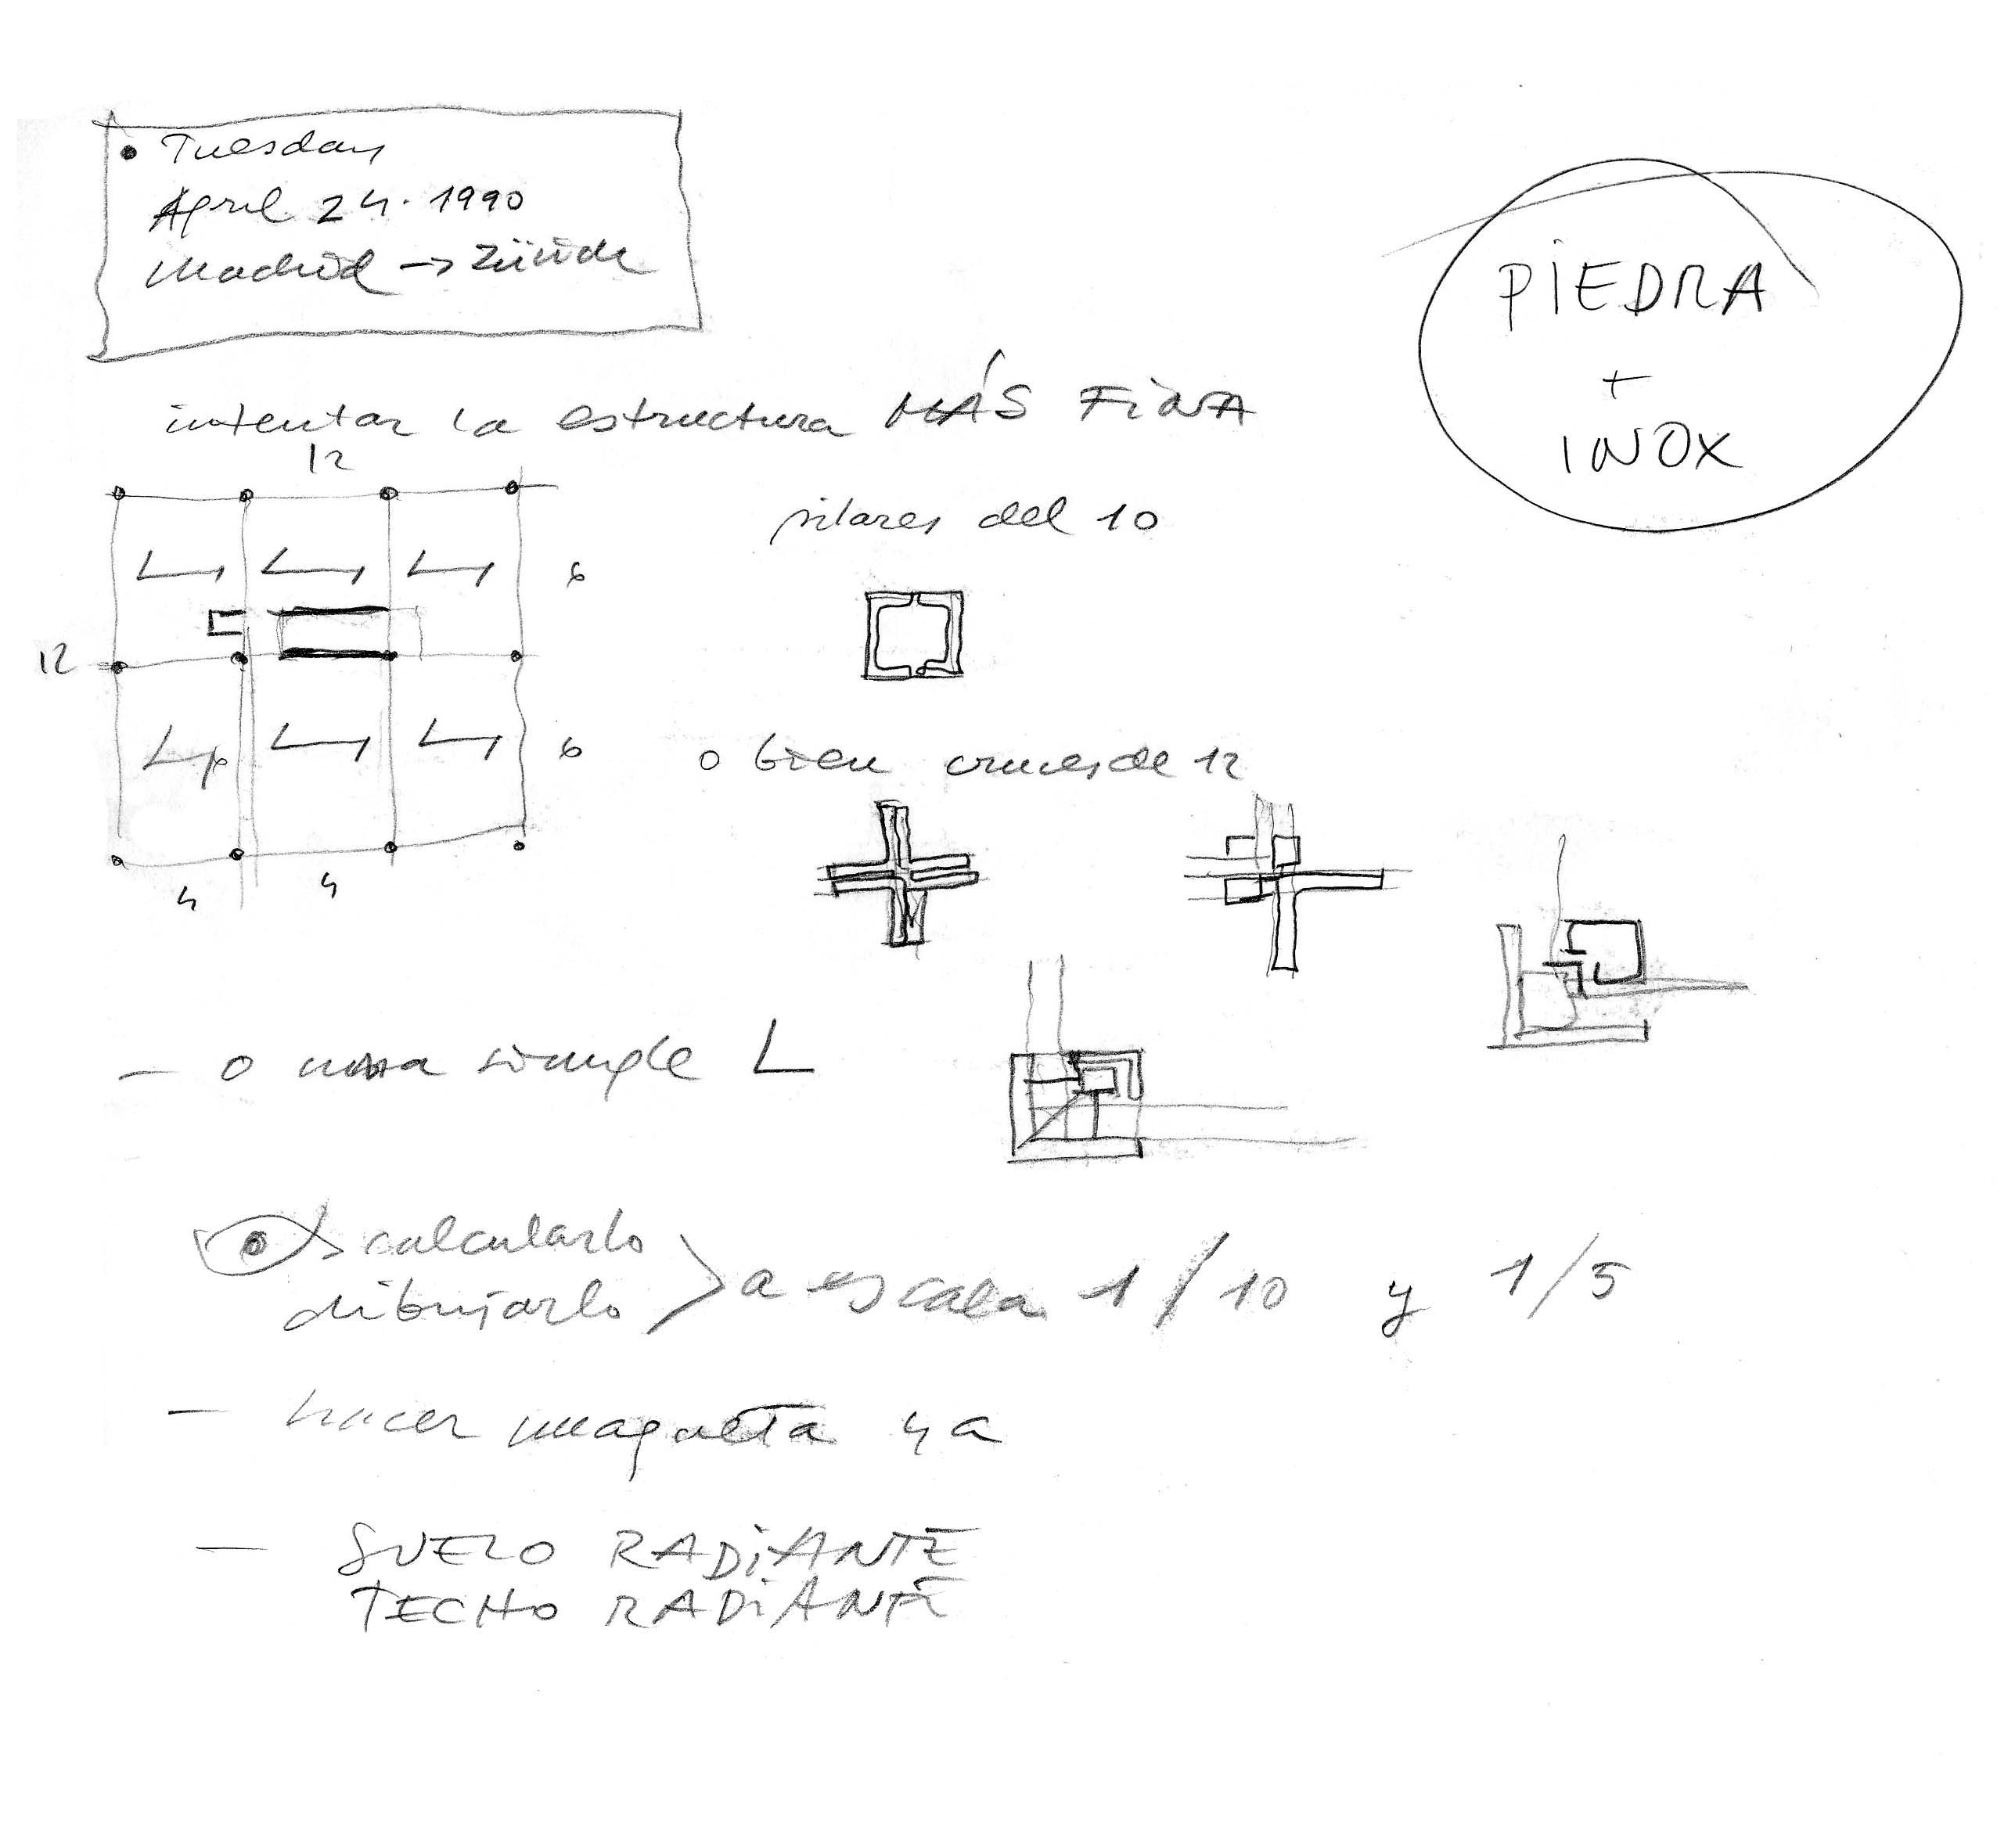 • Tuesday
April 24. 1990
Madrid → Zürich
PIEDRA
+
INOX
intentar la estructura MÁS FINA
12
pilares del 10
6
12
6
o bien cruces de 12
4 4
— o una simple L
calcularlo
dibujarlo > a escala 1/10 y 1/5
— hacer maqueta ya
— SUELO RADIANTE
TECHO RADIANTE